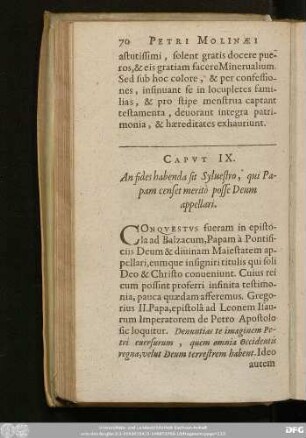 70 PETRI MOLINÆI
astutissimi, solent gratis docere pue-
ros, & eis gratiam facere Minerualium.
Sed sub hoc colore, & per confessio-
nes, insinuant se in locupletes fami-
lias, & pro stipe menstrua captant
testamenta, devorant integra patri-
monia, & hæreditates exhauriunt.
CAPVT IX.
An fides habenda sit Sylvestro, qui Pa-
pam censet meritò posse Deum
appellari.
CONQVESTVS fueram in episto-
la ad Balzacum, Papam à Pontifi-
ciis Deum & diuinam Maiestatem ap-
pellari, eumque insigniri titulis qui soli
Deo & Christo conueniunt. Cuius rei
cum possint proferri infinita testimo-
nia, pauca quædam afferemus. Grego-
rius II. Papa, epistolâ ad Leonem Isau-
rum Imperatorem de Petro Apostolo
sic loquitur. Denuntias te imaginem Pe-
tri euersurum, quem omnia Occidentis
regna, velut Deum terrestrem habent. Ideo
autem